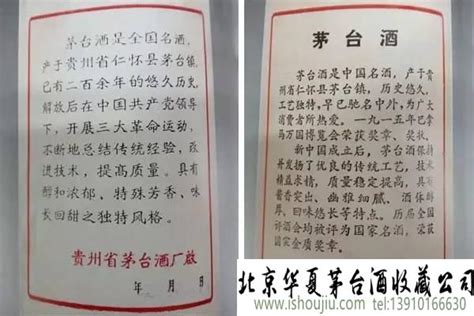 茅台酒是全国名酒,
产于贵州省仁怀县茅台镇,
已有二百余年的悠久历史,
解放后在中国共产党领导
下,开展三大革命运动,
不断地总结传统经验,改
进技术,提高质量。具有
醇和浓郁、特殊芳香、味
长回甜之独特风格。
贵州省茅台酒厂啟
年 月 日
茅台酒
茅台酒是中国名酒,产于贵
州省仁怀县茅台镇,历史悠久,
工艺独特,早已驰名中外,为广大
消费者所热爱。一九一五年巴拿
马万国博览会荣获奖章、奖状。
新中国成立后,茅台酒保持
并发扬了优良的传统工艺,技术
精益求精,质量稳定提高,具有
酱香突出、幽雅细腻、酒体醇
厚、回味悠长等特点。历届全国
评酒会均被评为国家名酒,荣获
国家金质奖章。
北京华夏茅台酒收藏公司
www.ishoujiu.com tel:13910166630